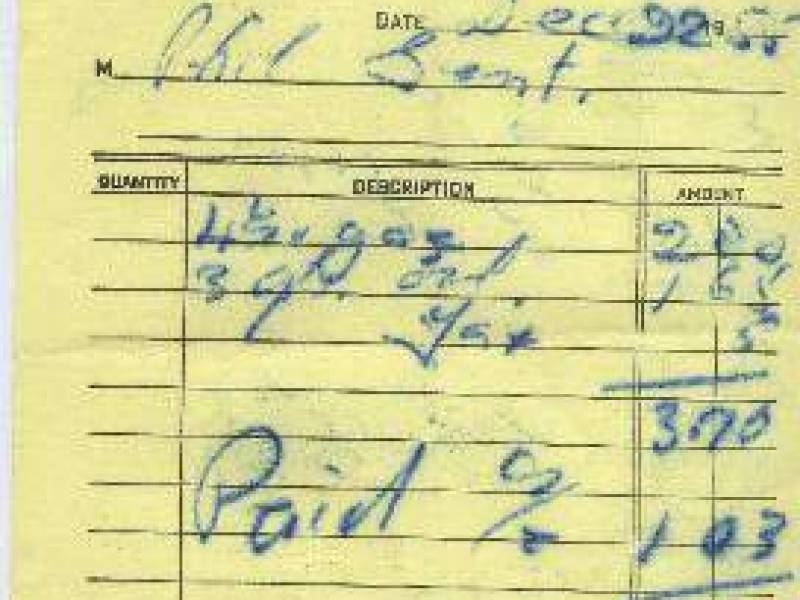 DATE Dec 22 19
M Phil Bent.
QUANTITY DESCRIPTION AMOUNT
gas 2
3 qts. oil. 1 65
Tax 5
3.70
Paid 1 03